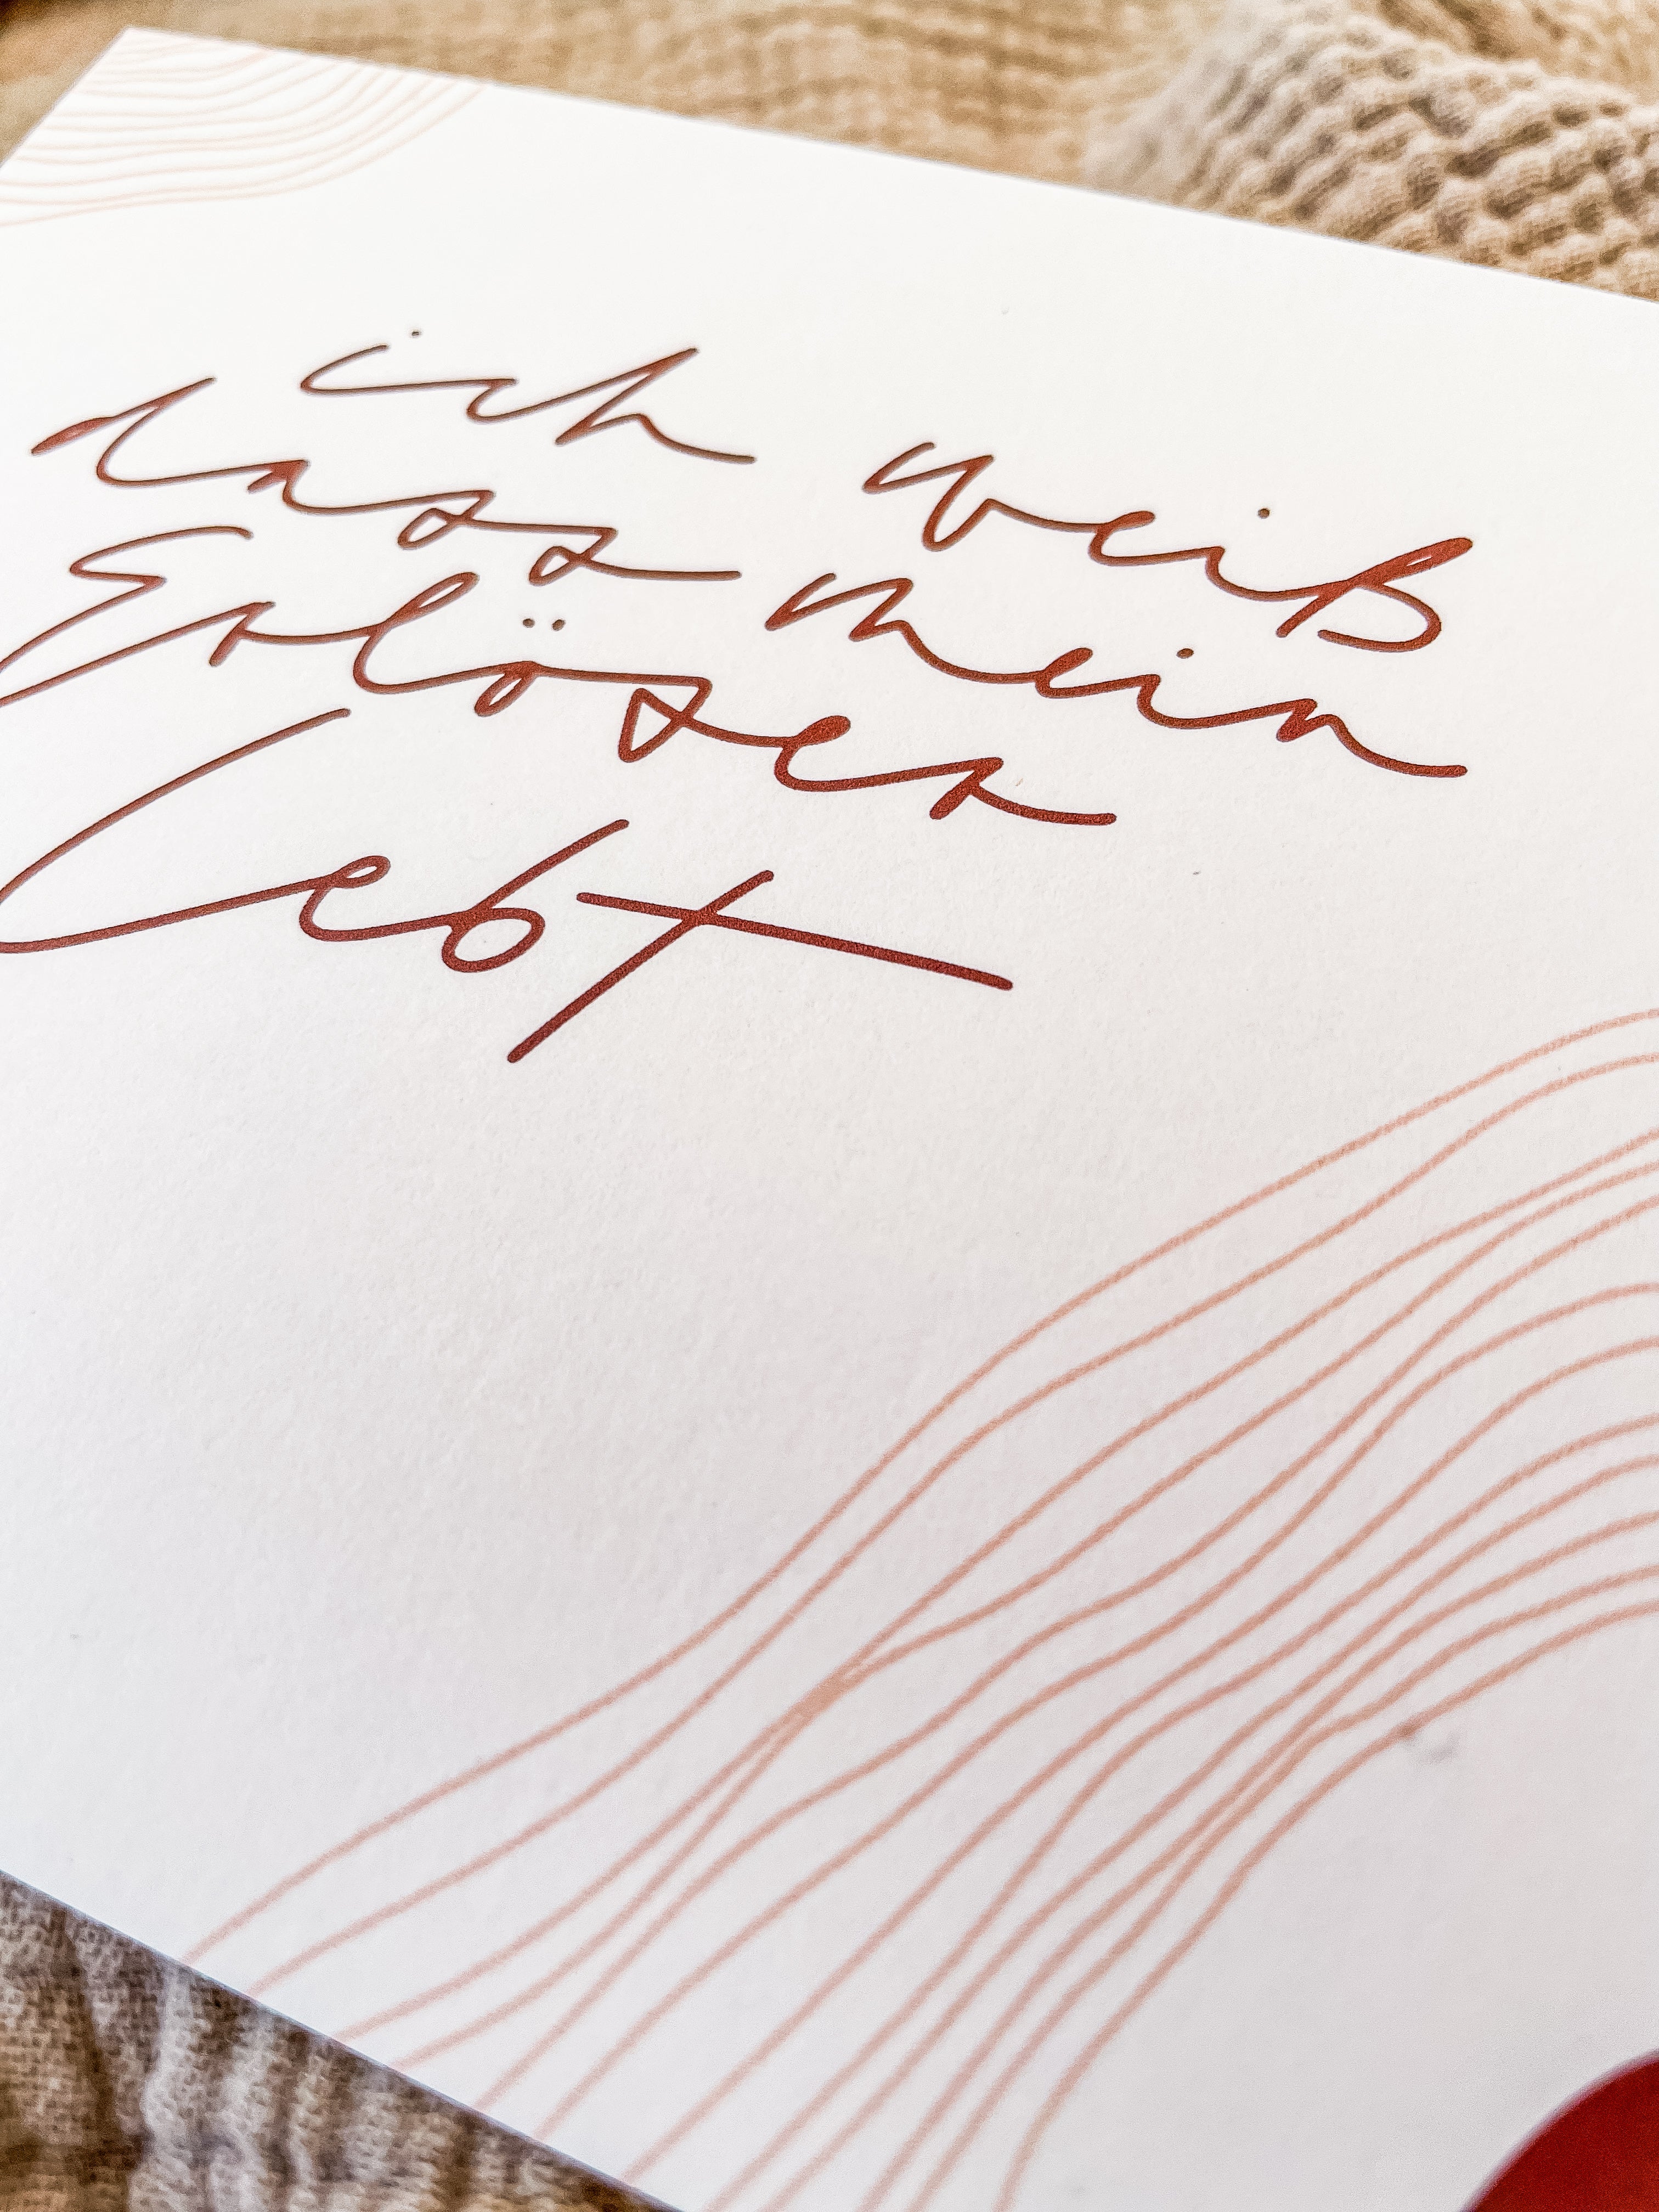 ich weiß
dass mein
Erlöser
lebt